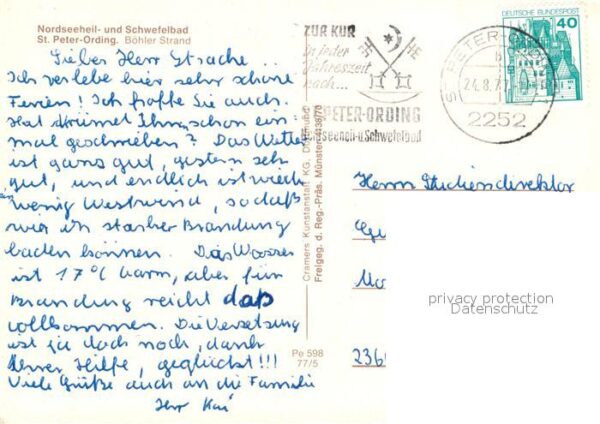 Nordseeheil- und Schwefelbad
St. Peter-Ording. Böhler Strand
Lieber Herr Strache...
Ich verlebe hier sehr schöne
Ferien! Ich hoffe Sie auch.
Hat Ihnen schon ein
mal geschrieben? Das Wetter
ist ganz gut, gestern sehr
gut, und endlich ist wieder
wenig Westwind, so daß
wir in starker Brandung
baden können. Das Wasser
ist 17°C warm, aber für
Brandung reicht daß
vollkommen. Die Versetzung
ist ja doch noch, dank
Ihrer Hilfe, geglückt!!!
Viele Grüße auch an die Familie
Ihr Kai
Cramers Kunstanstalt KG, Dortmund
Freigeg. d. Reg.-Präs. Münster 4138/70
Pe 598
77/5
ZUR KUR
in jeder
Jahreszeit
nach...
PETER-ORDING
Nordseeheil-u Schwefelbad
ST PETER-O
b
24.8.7
2252
DEUTSCHE BUNDESPOST
40
Herrn Studiendirektor
236
privacy protection
Datenschutz